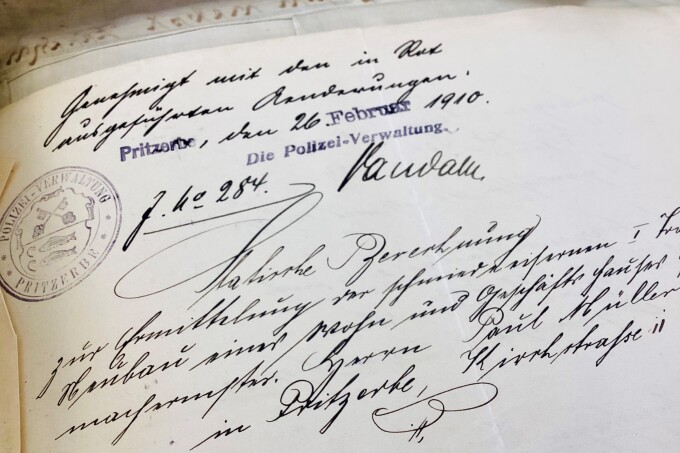 Genehmigt mit den in Rot
ausgeführten Aenderungen.
Pritzerbe, den 26. Februar 1910.
Die Polizei-Verwaltung.
J. No 284.
POLIZEI-VERWALTUNG
* PRITZERBE *
Statische Berechnung
zur Ermittelung der schmiedeeisernen I
Neubau eines Wohn und Geschäftshauses
machermster. Herrn Paul Müller
in Pritzerbe, Kirchstrasse 11